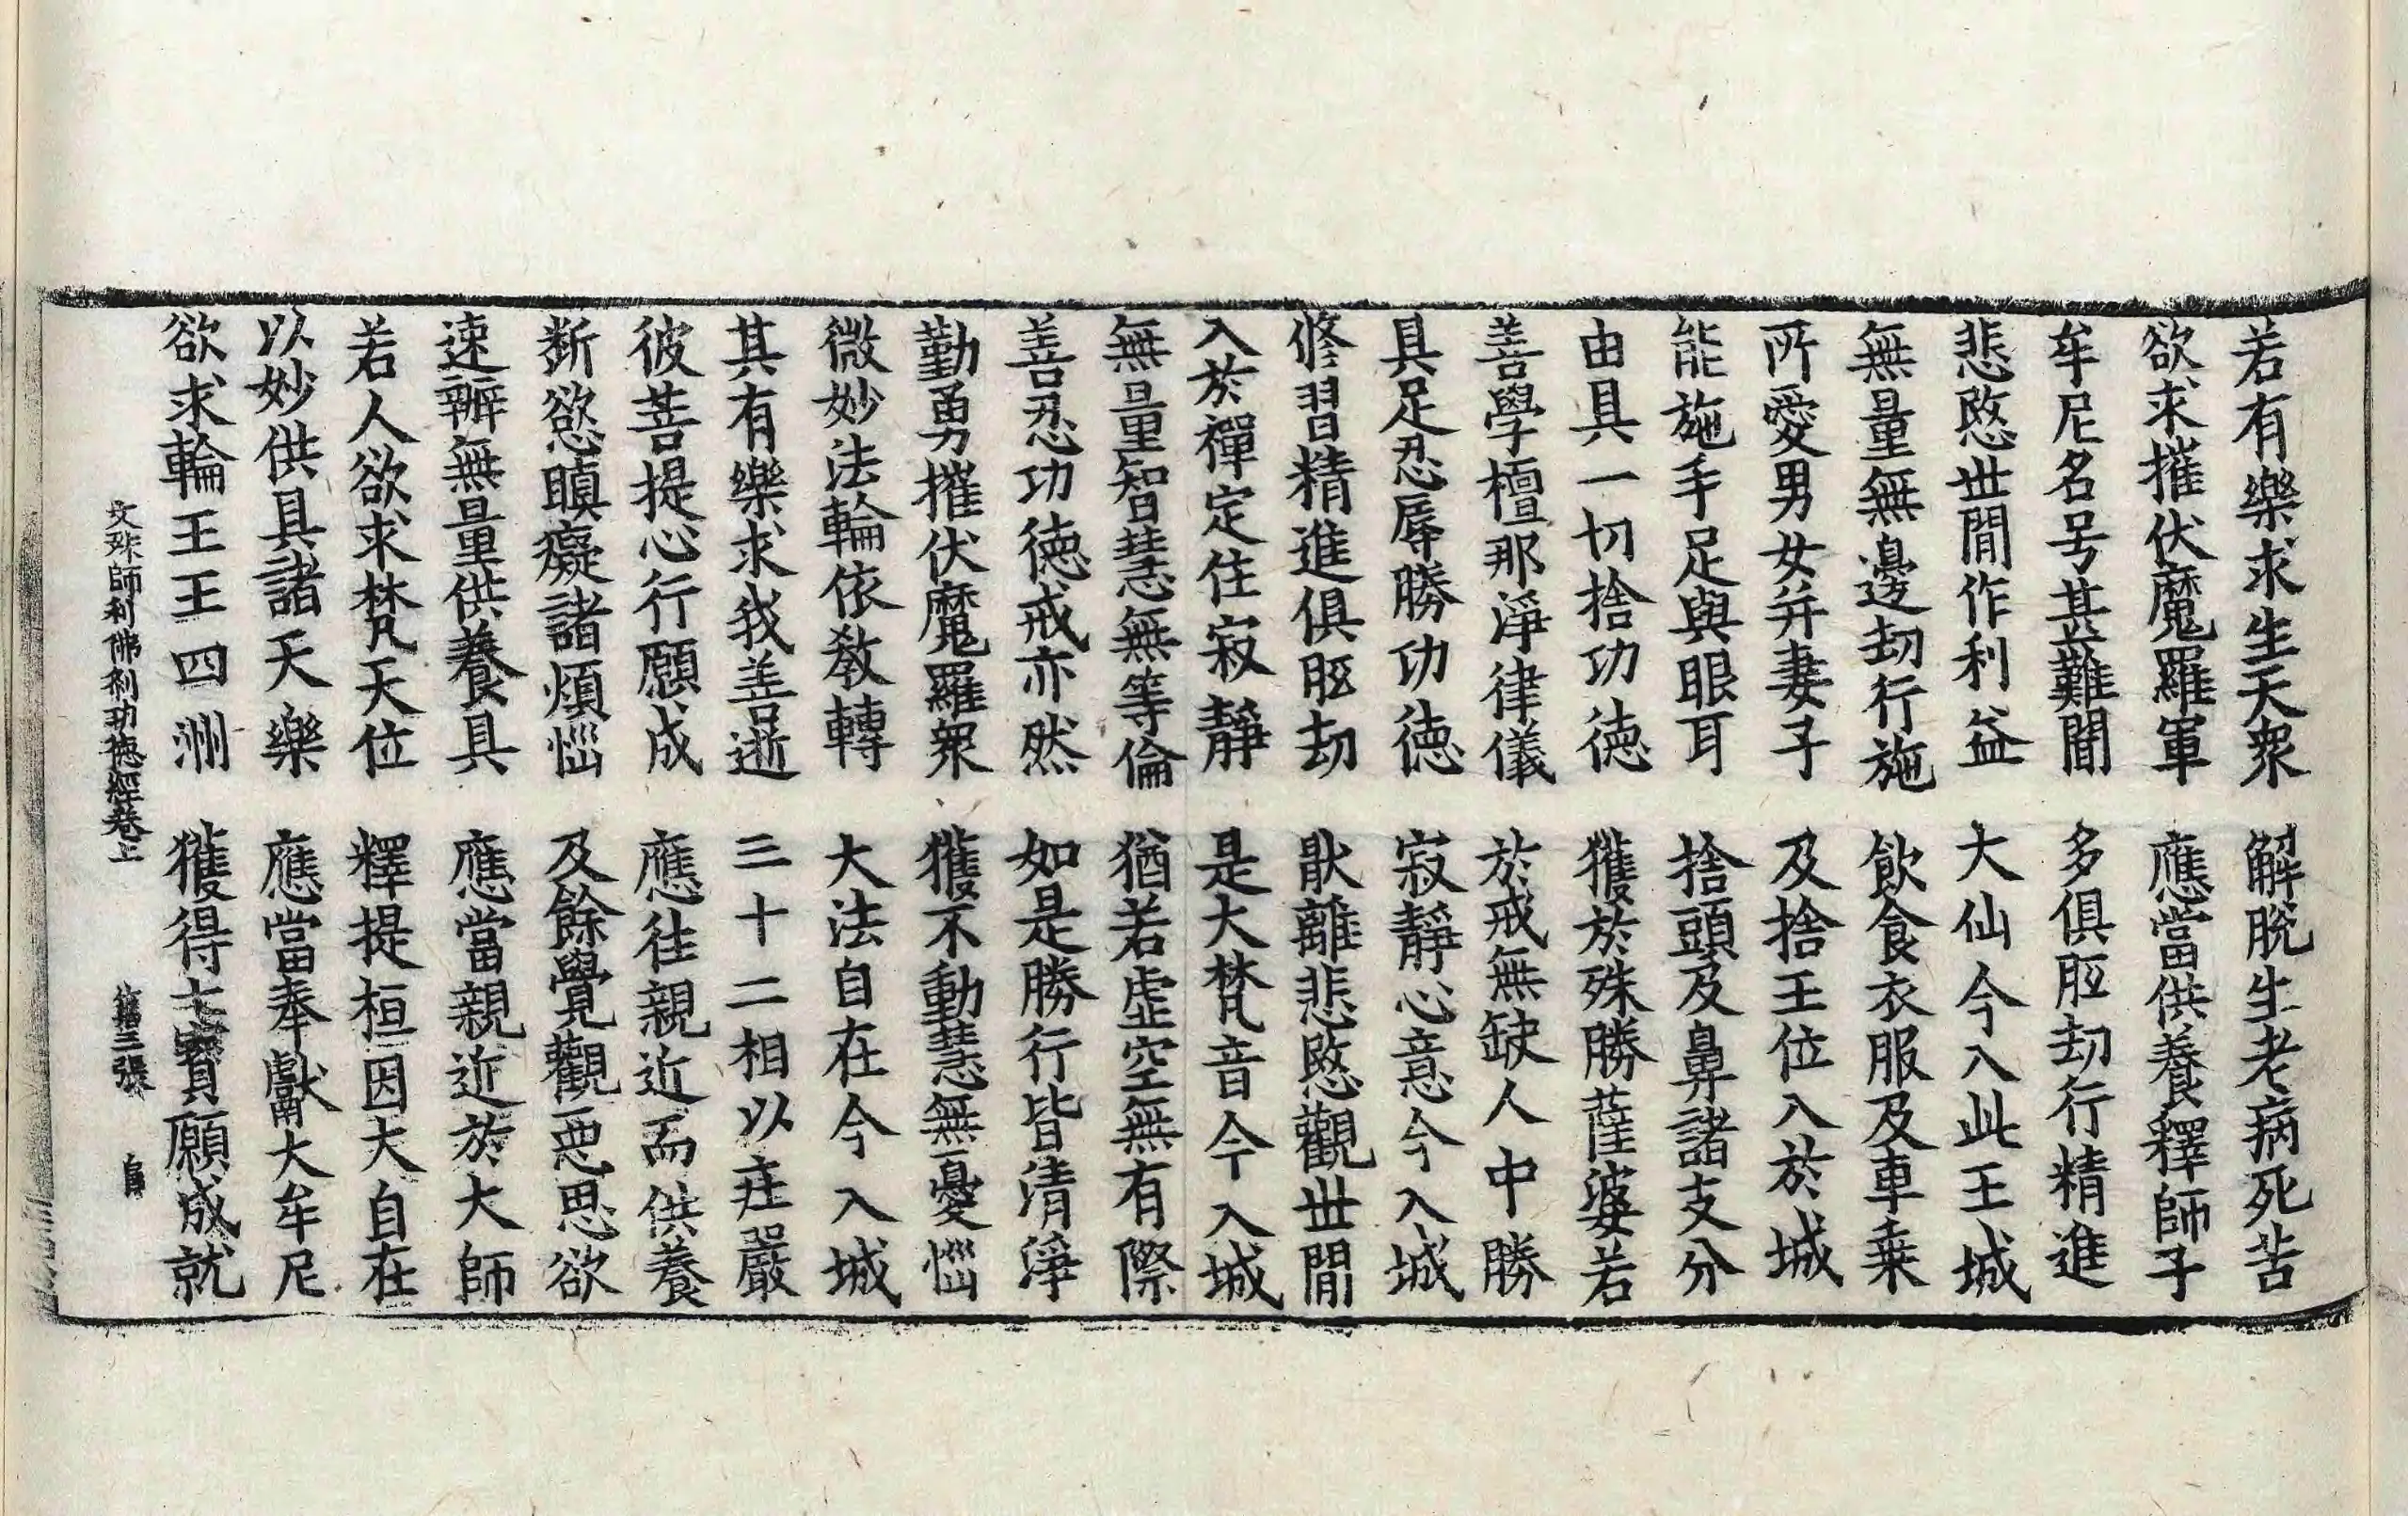 若有樂求生天衆　解脫生老病死苦
欲求摧伏魔羅軍　應當供養釋師子
牟尼名号甚難聞　多俱胝劫行精進
悲愍世閒作利益　大仙今入此王城
無量無邊劫行施　飲食衣服及車乗
所愛男女幷妻子　及捨王位入於城
能施手足與眼耳　捨頭及鼻諸支分
由具一切捨功徳　獲於殊勝薩婆若
善學檀那淨律儀　於戒無缺人中勝
具足忍辱勝功徳　寂靜心意今入城
修習精進俱胝劫　猒離悲愍觀世閒
入於禪定住寂靜　是大梵音今入城
無量智慧無等倫　猶若虛空無有際
善忍功徳戒亦然　如是勝行皆清淨
勤勇摧伏魔羅衆　獲不動慧無憂惱
微妙法輪依教轉　大法自在今入城
其有樂求我善逝　三十二相以莊嚴
彼菩提心行願成　應往親近而供養
斷慾瞋癡諸煩惱　及餘覺觀惡思欲
速辦無量供養具　應當親近於大師
若人欲求梵天位　釋提桓因大自在
以妙供具諸天樂　應當奉獻大牟尼
欲求輪王王四洲　獲得七寶願成就
文殊師利佛刹功德經卷上　第三張